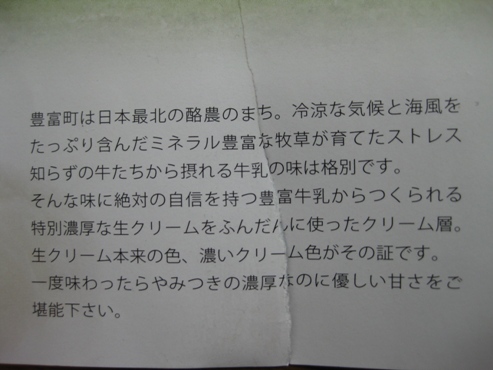 豊富町は日本最北の酪農のまち。冷涼な気候と海風を
たっぷり含んだミネラル豊富な牧草が育てたストレス
知らずの牛たちから摂れる牛乳の味は格別です。
そんな味に絶対の自信を持つ豊富牛乳からつくられる
特別濃厚な生クリームをふんだんに使ったクリーム層。
生クリーム本来の色、濃いクリーム色がその証です。
一度味わったらやみつきの濃厚なのに優しい甘さをご
堪能下さい。